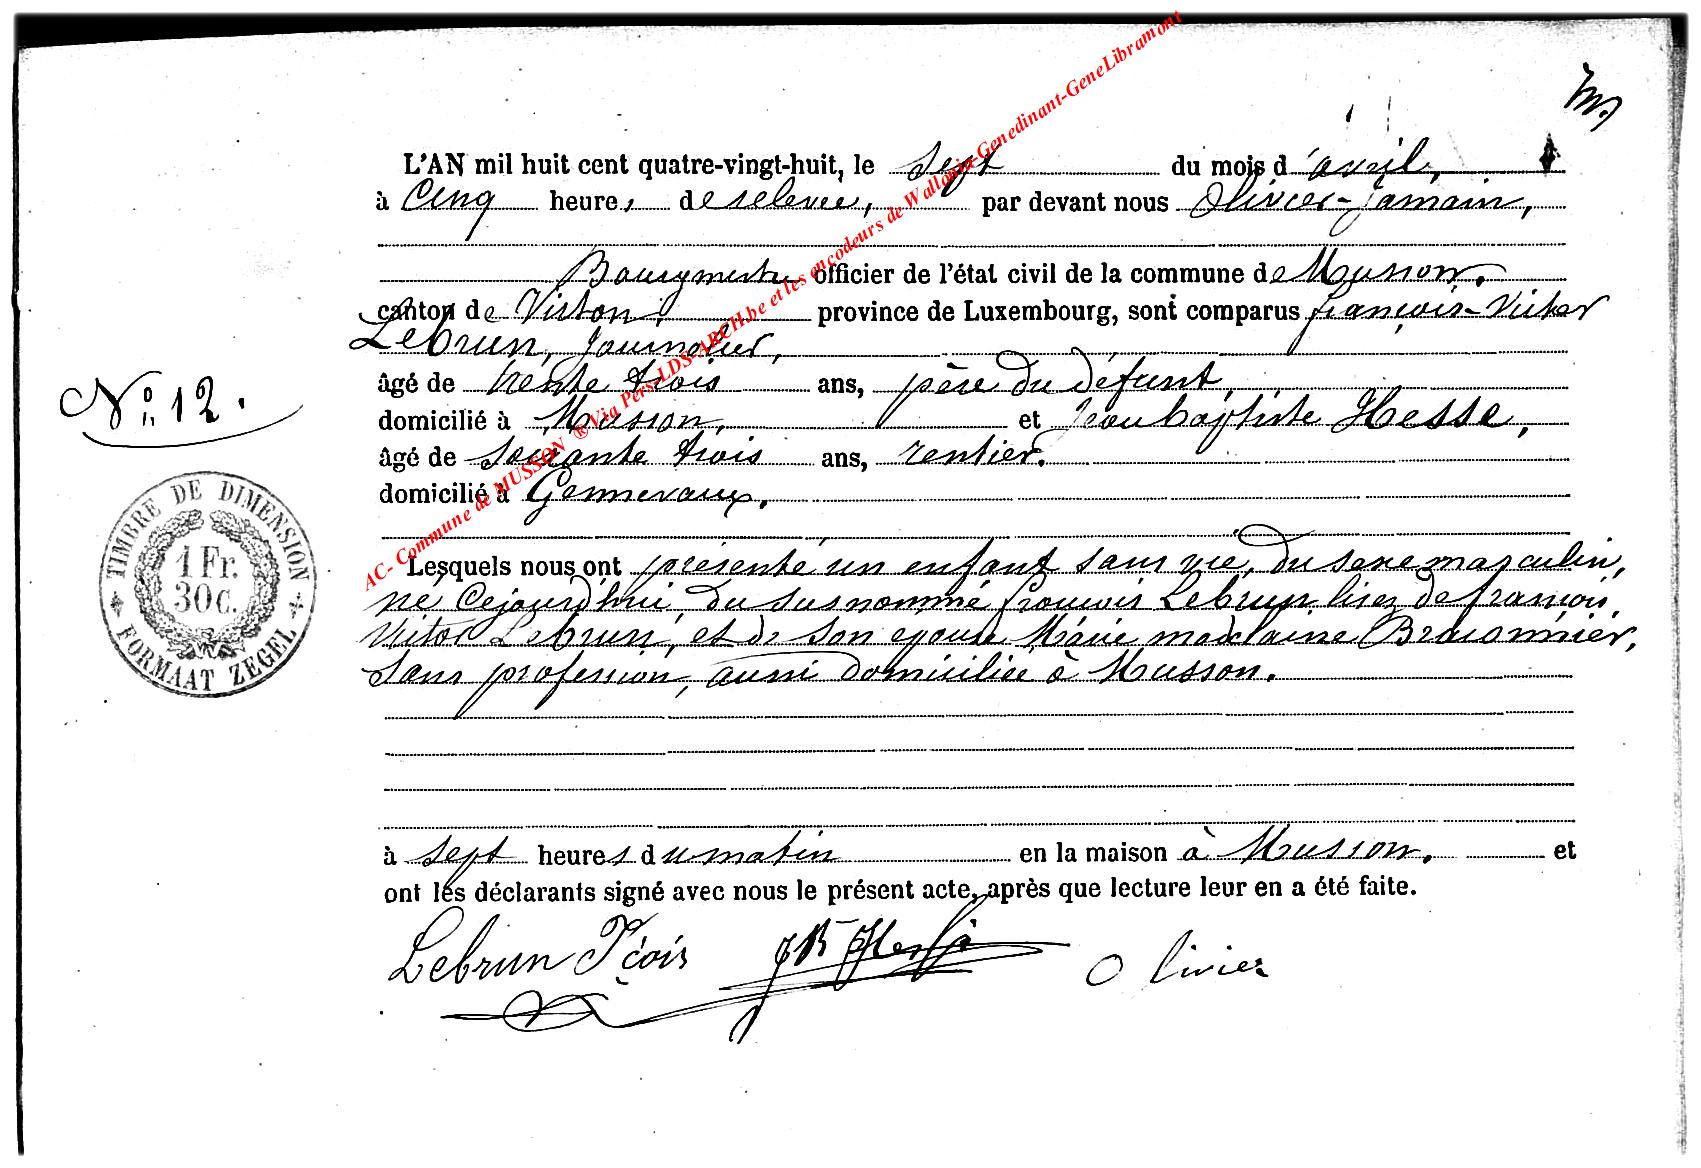 L'AN mil huit cent quatre-vingt-huit, le sept du mois d'avril,
à cinq heures de relevée, par devant nous Olivier-Jamain,
Bourgmestre officier de l'état civil de la commune de Musson.
canton de Virton. province de Luxembourg, sont comparus françois-Victor
Lebrun, Journalier,
âgé de trente trois ans, père du défunt,
domicilié à Musson, et Jean baptiste Hesse,
âgé de soixante trois ans, rentier.
domicilié à Gennevaux.
Lesquels nous ont présenté un enfant sans vie, du sexe masculin,
né Cejourd'hui, du susnommé françois Lebrun lisez de françois,
Victor Lebrun, et de son epouse Marie madelaine Braconnier,
sans profession, aussi domiciliée à Musson.
à sept heures du matin en la maison à Musson. et
ont les déclarants signé avec nous le présent acte, après que lecture leur en a été faite.
Lebrun Fçois JB Olivier
N° 12.
TIMBRE DE DIMENSION
1 Fr.
30 C.
FORMAAT ZEGEL
AC- Commune de MUSSON ® Via Pers-LDS-ARCH.be et les encodeurs de Wallonia-Genedinant-GeneLibramont